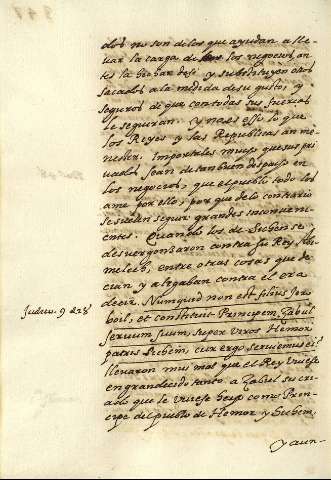 dos no son delos que ayudan a lle-
uar la carga de los negocios, an-
tes la hechan de si y substituyen otros
sacados a la medida de su gusto, y
seguros de que con todas sus fuerças
le seguiran. y no es esso lo que
los Reyes y las Republicas an me-
nester. Importales mucho que sus pri-
uados sean de tan buen despacho en
los negocios, que el pueblo todo los
ame por ello, por que de lo contrario
se suelen seguir grandes inconueni-
entes. Quando los de Sichen se
desuergonçaron contra su Rey Abi-
melech, entre otras cosas que de-
cian y alegaban contra el era
decir, Numquid non est filius Jero
Judicū. 9 a 28
boal, et constituit Principem Zabul
seruum suum, super viros Hemor
patris Sichem, cur ergo seruiemus ei
lleuaron mui mal que el Rey vuiese
engrandecido tanto a Zabul su cri-
ado que le vuiese hecho como Prin-
cipe del pueblo de Hemor y Sichem.
y aun-